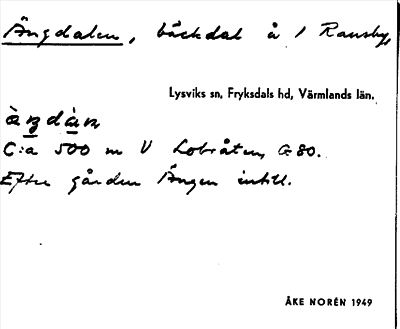 Ängdalen, bäckdal å 1 Ransby,
Lysviks sn, Fryksdals hd, Värmlands län.
C:a 500 m V Lobråten, G 80.
Efter gården Ängen intill.
ÅKE NORÉN 1949